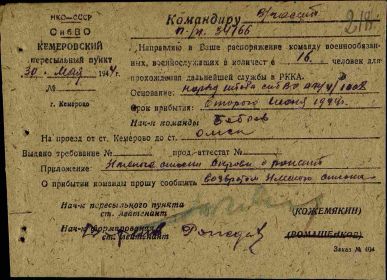 НКО—СССР
Командиру в/части
СибВО
п/п. 34166
КЕМЕРОВСКИЙ
пересыльный пункт
Направляю в Ваше распоряжение команду военнообязан-
30 мая 1944 г.
ных, военнослужащих в количест е 16 человек для
№
прохождения дальнейшей службы в РККА.
г. Кемерово
Основание: наряд штаба СибВО
Срок прибытия: Второго июня 1944г.
Нач-к команды Бобров
На проезд от ст. Кемерово до ст. Омск
Выдано требование № прод. аттестат №
Приложение: Именные списки
О прибытии команды прошу сообщить возвратом именного списка
Нач-к пересыльного пункта
ст. лейтенант
(КОЖЕМЯКИН)
Нач-к формирования
ст. лейтенант
(РОМАЩЕНКОВ)
Заказ № 404